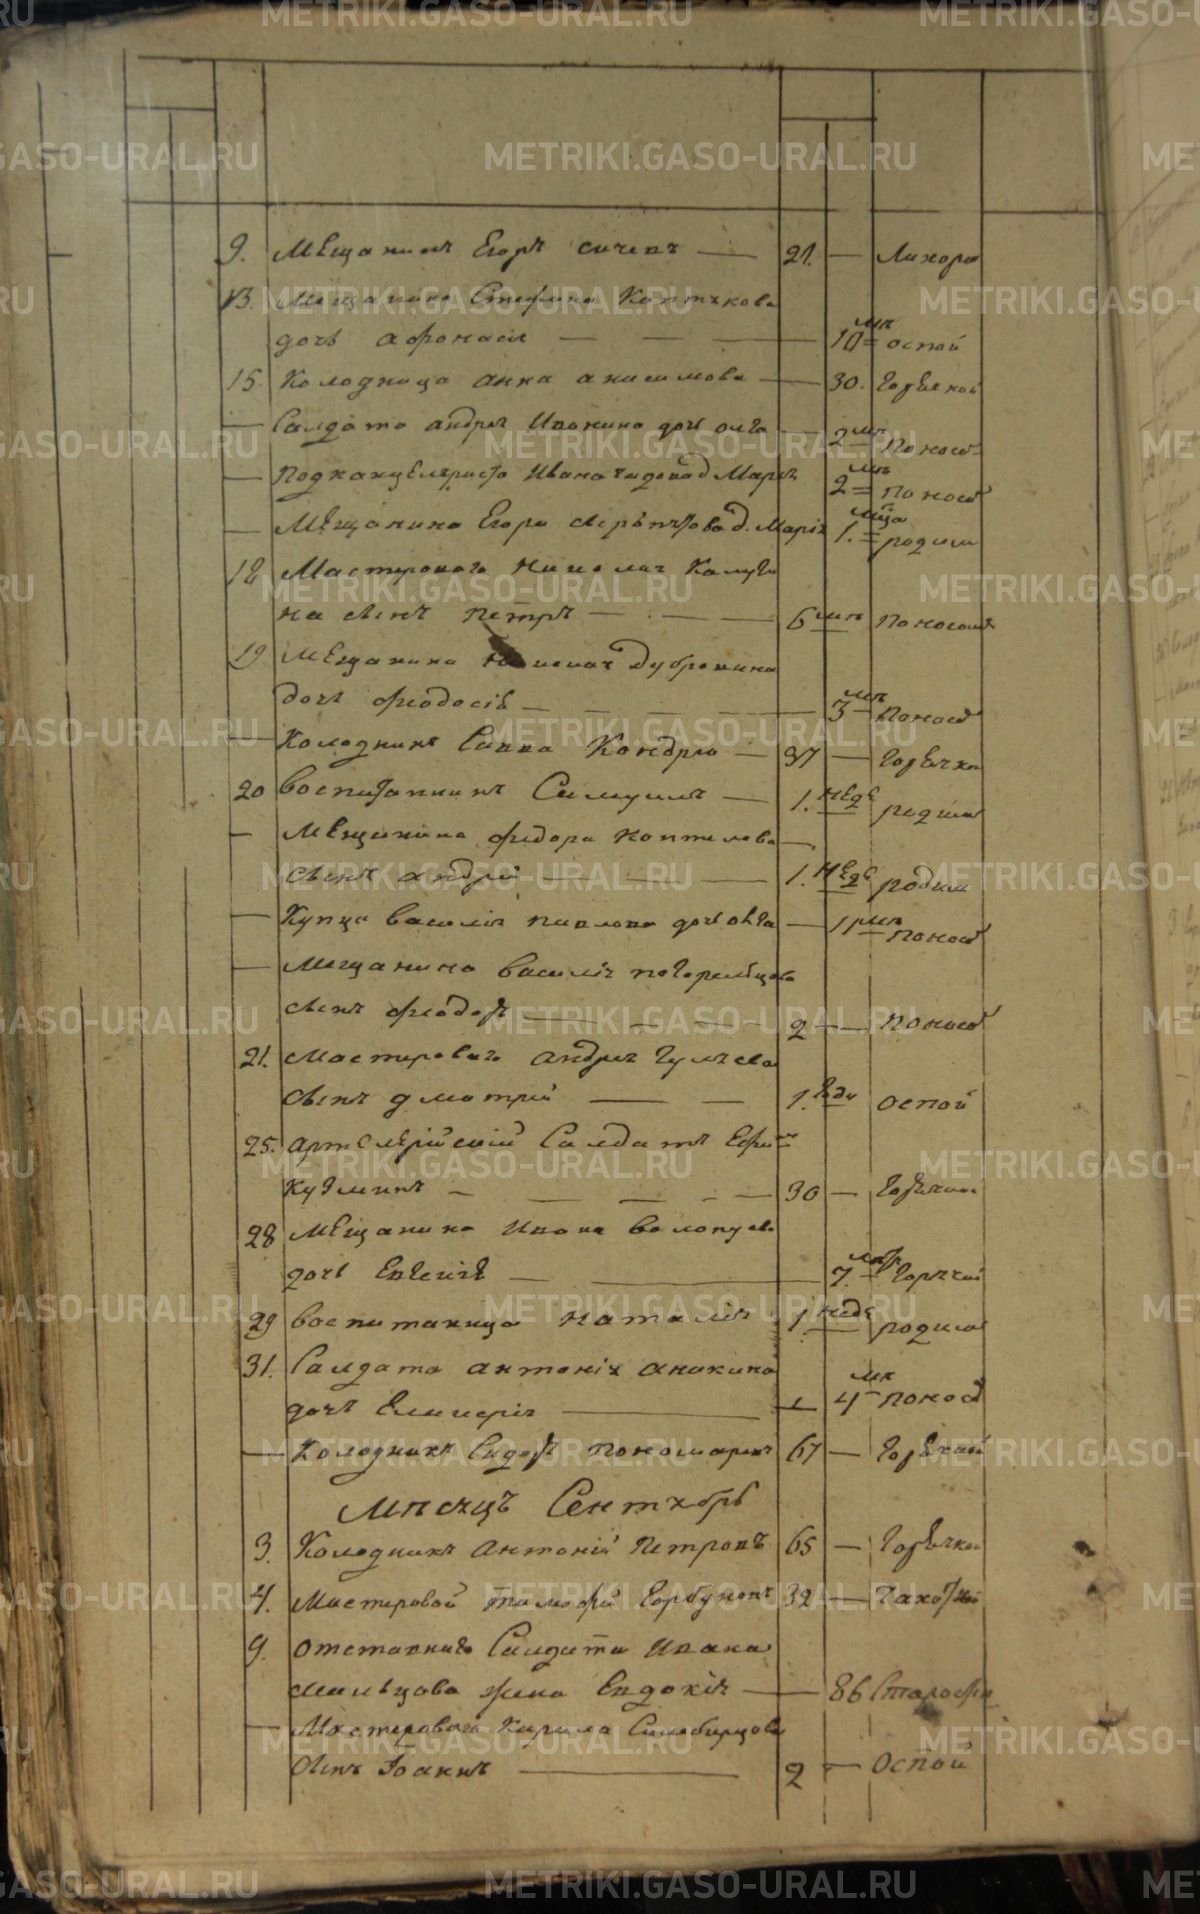 9. Мещанинъ Егоръ сичевъ — 21. — Лихора
13. Мещанина Стефана Коптякова
дочь афонасія — 10 мц оспой
15. Колодница анна анисимова — 30. горячкой
— Салдата андрея Иванина дочь олга — 2 мц поносо
— Подканцеляриста Ивана д Марія 2 мц поносо
— Мещанина Егора д. Марія 1. мца родим
18 Мастероваго Николая Калуги
на сынъ петръ — 6 мц поносомъ
19 Мещанина Николая Дубровина
дочь феодосія — 3 мц поносо
— Колодникъ Савва Кондра — 37 — горячка
20 воспитанникъ Самуилъ — 1. неде родим
— Мещанина федора коптелова
сынъ андрей — 1. неде родим
— Купца василія павлова дочь — 11 мц поносо
— Мещанина василія погорельцова
сынъ феодоръ — 2 — поносо
21. мастероваго андрея
сынъ дмитрий — 1. годъ оспой
25. артелерійскій Салдатъ Ефим
— 30 — горячкой
28 Мещанина Ивана
дочь Евгенія — 7. горячкой
29 воспитаница наталія 1 неде родим
31. Салдата антонія аникина
дочь Гликерія — 4 мц поносо
— Колодникъ Сидоръ пономаревъ 67 — горячкой
Мѣсяцъ Сентябрь
3. Колодникъ антоній петровъ 65 — горячкой
4. Мастеровой тимофей горбуновъ 32 — Чахоткой
9. отставнаго Салдата Ивана
жена Евдокія — 86 Старости
— Мастероваго Кирила Синбирцова
сынъ Іоаннъ — 2 — оспой
METRIKI.GASO-URAL.RU